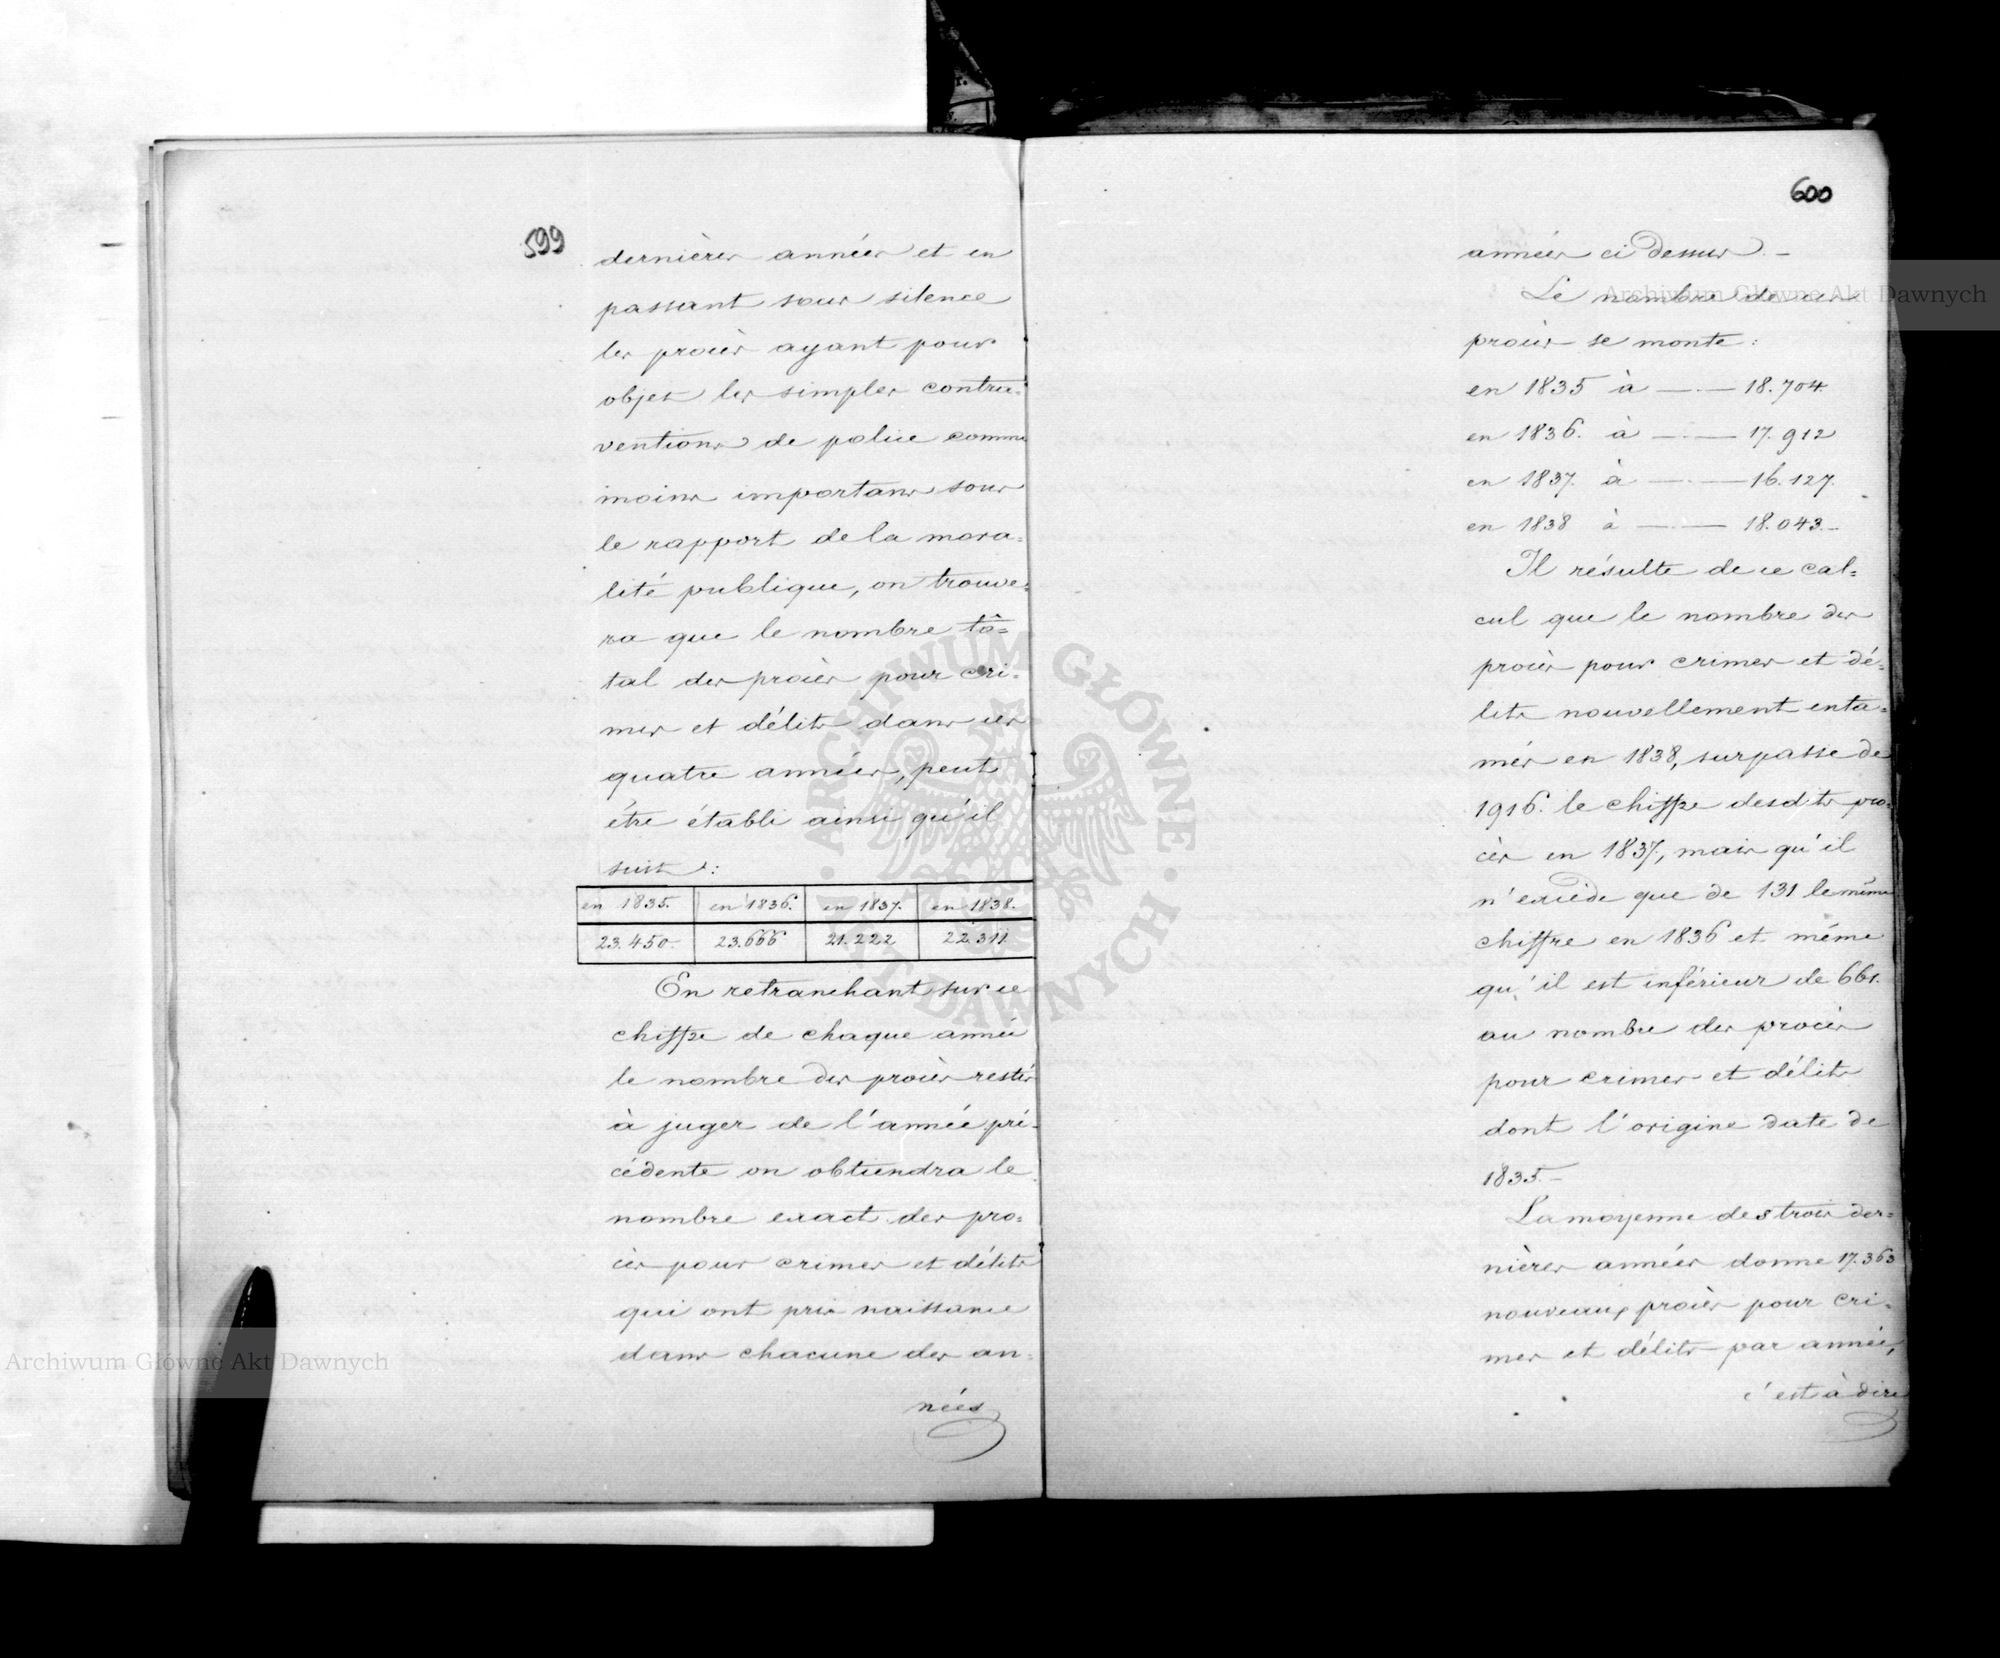 599
dernières années et en
passant sous silence
les procès ayant pour
objet les simples contra=
ventions de police comme
moins importans sous
le rapport de la mora=
lité publique, on trouve=
ra que le nombre tô=
tal des procès pour cri=
mes et délits dans ces
quatre années, peut
être établi ainsi qu'il
suit:
en 1835. en 1836. en 1837. en 1838.
23.450. 23.666 21.222 22.311
En retranchant sur ce
chiffre de chaque année
le nombre des procès restés
à juger de l'année pré=
cédente on obtiendra le
nombre exact des pro=
cès pour crimes et délits
qui ont pris naissance
dans chacune des an=
nées
600
années ci dessus. –
Le nombre de ces
procès se monte:
en 1835 à —·— 18.704
en 1836. à —·— 17.912
en 1837. à —·— 16.127.
en 1838 à —·— 18.043.–
Il résulte de ce cal=
cul que le nombre des
procès pour crimes et dé=
lits nouvellement enta=
més en 1838, surpasse de
1916. le chiffre desdits pro=
cès en 1837, mais qu'il
n'excède que de 131 le même
chiffre en 1836 et même
qu'il est inférieur de 661.
au nombre des procès
pour crimes et délits
dont l'origine date de
1835.–
La moyenne des trois der=
nières années donne 17.363
nouveaux procès pour cri=
mes et délits par année,
c'est à dire
Archiwum Główne Akt Dawnych
Archiwum Główne Akt Dawnych
ARCHIWUM GŁÓWNE AKT DAWNYCH